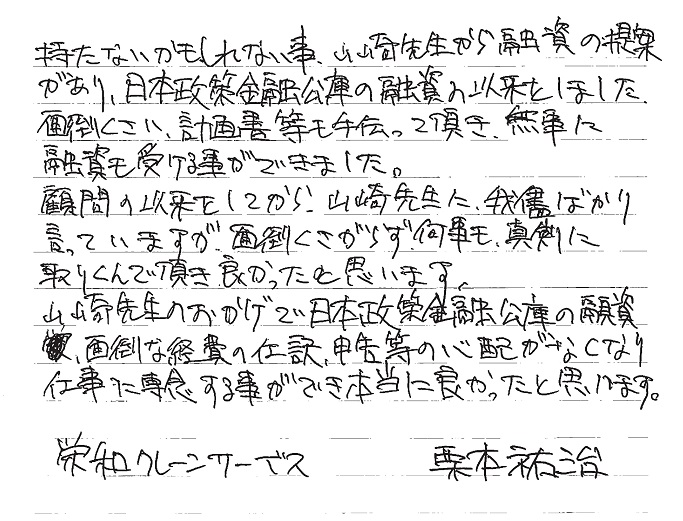 持たないかもしれない事、山崎先生から融資の提案
があり、日本政策金融公庫の融資の以来をしました、
面倒くさい、計画書等も手伝って頂き、無事に
融資も受ける事ができました。
顧問の以来をしてから、山崎先生に、我儘ばかり
言っていますが、面倒くさがらず、何事も、真剣に
取りくんで頂き良かったと思います、
山崎先生のおかげで日本政策金融公庫の融資
、面倒な経費の仕訳、申告等の心配がなくなり
仕事に専念する事ができ本当に良かったと思います。
栄和クレーンサービス 栗本祐治